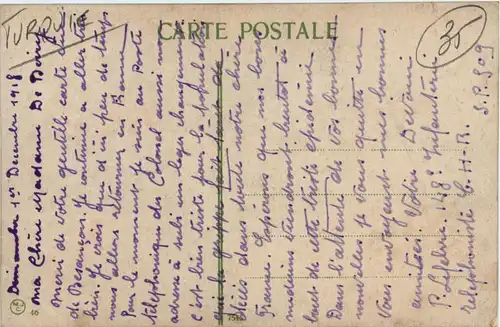 TURQUIE
CARTE POSTALE
35
Dimanche 1er Décembre 1918
Ma Chère Madame De Dome
Merci de votre gentille carte
de Besançon. Je continue à aller très
bien. Je crois que d'ici peu de temps
nous allons retourner en
Pour le moment je suis au poste
téléphonique du Colonel aussi mon
adresse a subi un léger changement
c'est bien triste pour la population
que la grippe fait tant de
décès dans toute notre chère
France. Espérons que nos bons
médecins viendront bientôt à
bout de cette triste épidémie
Dans l'attente de vos bonnes
nouvelles je vous quitte en
vous envoyant mes bonnes
amitiés Votre Dévoué
P. Lefebvre 148e Infanterie
téléphoniste C.H.R. S.P. 509
46